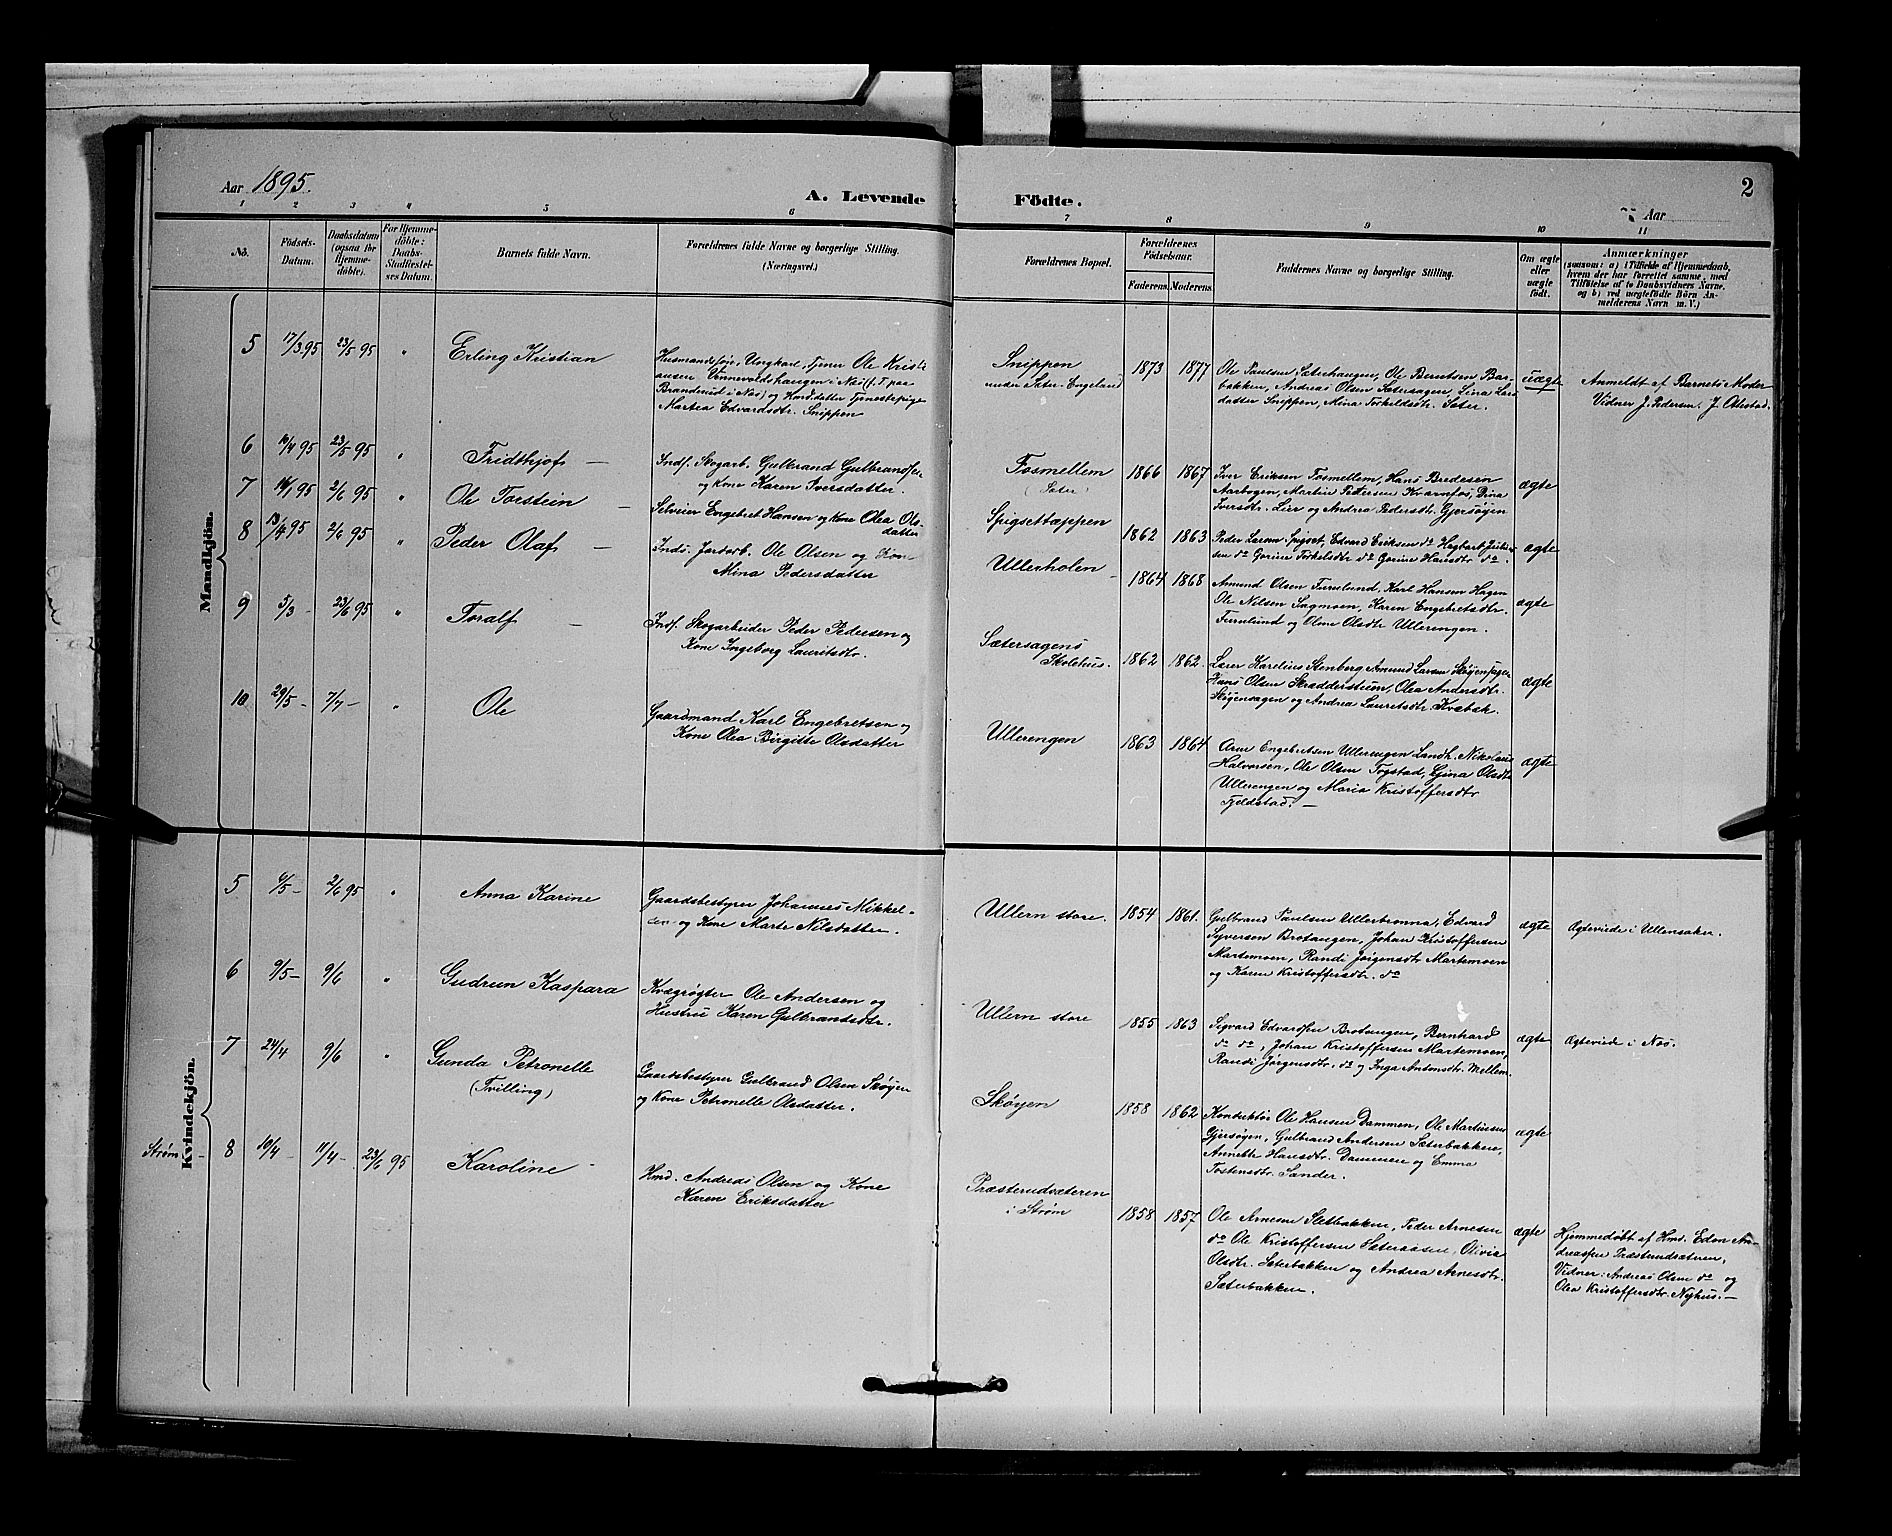 Aar 1895.
A. Levende Födte.
2
Aar
1 2 3 4 5 6 7 8 9 10 11
No.
Födsels-Datum.
Daabsdatum (ogsaa for Hjemmedöbte).
For Hjemmedöbte: Daabs-Stadfæstelses Datum.
Barnets fulde Navn.
Forældrenes fulde Navne og borgerlige Stilling.
(Næringsvei.)
Forældrenes Bopæl.
Forældrenes Födselsaar.
Faderens. Moderens.
Faddernes Navne og borgerlige Stilling.
Om ægte eller uægte födt.
Anmærkninger
(saasom: a) i Tilfælde af Hjemmedaab, hvem der har forrettet samme, med Tilföielse af to Daabsvidners Navne, og b) ved uægtefödte Börn Anmelderens Navn m. V.)
Mandkjön.
5 17/3 95 23/5 95 " Erling Kristian
Husmandssøn, Ungkarl, Tjener Ole Kristi
ansen Vinnevoldshaugen i Nes (f. T. paa
Brandvold i Nes) og Husm.datter Tjenestepige
Martea Edvardsdtr. Snippen
Snippen
under Sæter-Engeland
1873 1877
Ole Paulsen Sæterhaugen, Ole Berntsen Bar-
bakken, Andreas Olsen Sætersagen, Lina Lars
datter Snippen, Mina Torkeldsdtr. Sæter.
uægte
Anmeldt af Barnets Moder
Vidner J. Pedersen. J. Olestad.
6 10/4 95 23/5 95 " Fridthjof —
Inds. Skogarb. Gulbrand Gulbrandsen
og Kone Karen Iversdatter.
Fosmellem
(Sæter)
1866 1867
Iver Eriksen Fosmellem, Hans Bredesen
Aarbogen, Martin Pettersen Kvarnfos, Dina
Iversdtr. Lier og Andrea Pedersdtr. Gjersøyen
ægte
7 14/1 95 2/6 95 " Ole Torstein —
Selveier Engebret Hansen og Kone Olea Ols-
datter
Spigsettæppen
1862 1863
Peder Larsen Spigset, Edvard Eriksen do Hegbart Julius
sen do Gorine Torkelsdtr do Gorine Hansdtr. do.
ægte
8 13/4 95 2/6 95 " Peder Olaf —
Inds. Jordarb. Ole Olsen og Kone
Mina Pedersdatter
Ullerholen
1864 1868
Amund Olsen Furulund, Karl Hansen Hagen
Ole Nilsen Sagmoen, Karen Engebretsdtr.
Furulund og Olme Olsdtr Ullerengen.
ægte
9 5/3 - 23/6 95 " Toralf —
Inds. Skogarbeider Peder Pedersen og
Kone Ingeborg Lauritsdtr.
Sætersagens
Skolehus.
1862 1862.
Lærer Karelius Stenberg Amund Larsen Skøyensagen
Hans Olsen Skradderstuen, Olea Andersdtr.
Skøyensagen og Andrea Lauritsdtr. Kvæbæk.
ægte
10 29/5 - 7/7 - " Ole
Gaardmand Karl Engebretsen og
Kone Olea Birgitte Olsdatter
Ullerengen
1863 1864
Arne Engebretsen Ullerengen Landh. Nikolaus
Halvorsen, Ole Olsen Togstad, Gina Olsdtr
Ullerengen og Maria Kristoffersdtr
Fjeldstad. —
ægte
Kvindekjön.
5 6/5 - 2/6 95 " Anna Karine
Gaardsbestyrer Johannes Mikkel-
sen og Kone Marte Nilsdatter.
Ullern store.
1854 1861.
Gulbrand Paulsen Ullerbrønna, Edvard
Syversen Brotangen, Johan Kristoffersen
Martemoen, Randi Jørgensdtr Martemoen
og Karen Kristoffersdtr. do
ægte
Ægteviede i Ullensaker.
6 9/5 - 9/6 " Gudrun Kaspara
Kvægrøgter Ole Andersen og
Hustru Karen Gulbrandsdtr.
Ullern store
1855 1863
Sigvard Edvardsen Brotangen, Bernhard
do do, Johan Kristoffersen Martemoen,
Randi Jørgensdtr. do og Inga Antonsdtr. Mellem.
ægte
Ægteviede i Nes.
7 24/4 9/6 " Gunda Petronelle
(Tvilling)
Gaardsbestyrer Gulbrand Olsen Skøyen
og Kone Petronelle Olsdatter.
Skøyen
1858 1862
Konduktør Ole Hansen Dammen, Ole Martinsen
Gjersøyen, Gulbrand Andersen Sæterbakken,
Annette Hansdtr. Dammen og Emma
Tostensdtr. Sander.
ægte
Strøm - 8 10/4 - 11/4 - 23/6 95 Karoline -
Hmd. Andreas Olsen og Kone
Karen Eriksdatter
Præsterudsæteren
i Strøm
1858 1857.
Ole Arnesen Sletbakken, Peder Arnesen
do Ole Kristoffersen Sæteraasen, Olivia
Olsdtr. Sæterbakken og Andrea Arnesdtr.
Sæterbakken.
ægte
Hjemmedøbt af Hmd. Edon An-
dreassen Præsterudsæteren,
Vidner: Andreas Olsen do og
Olea Kristoffersdtr. Nyhus. —